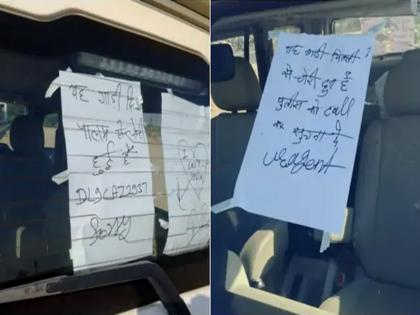 यह गाडी
पालम से चोरी
हुई है
DL9CAZ2937
Sorry
यह गाडी दिल्ली
से चोरी हुई है
पुलीस को call
कर सुचना दे
urgent